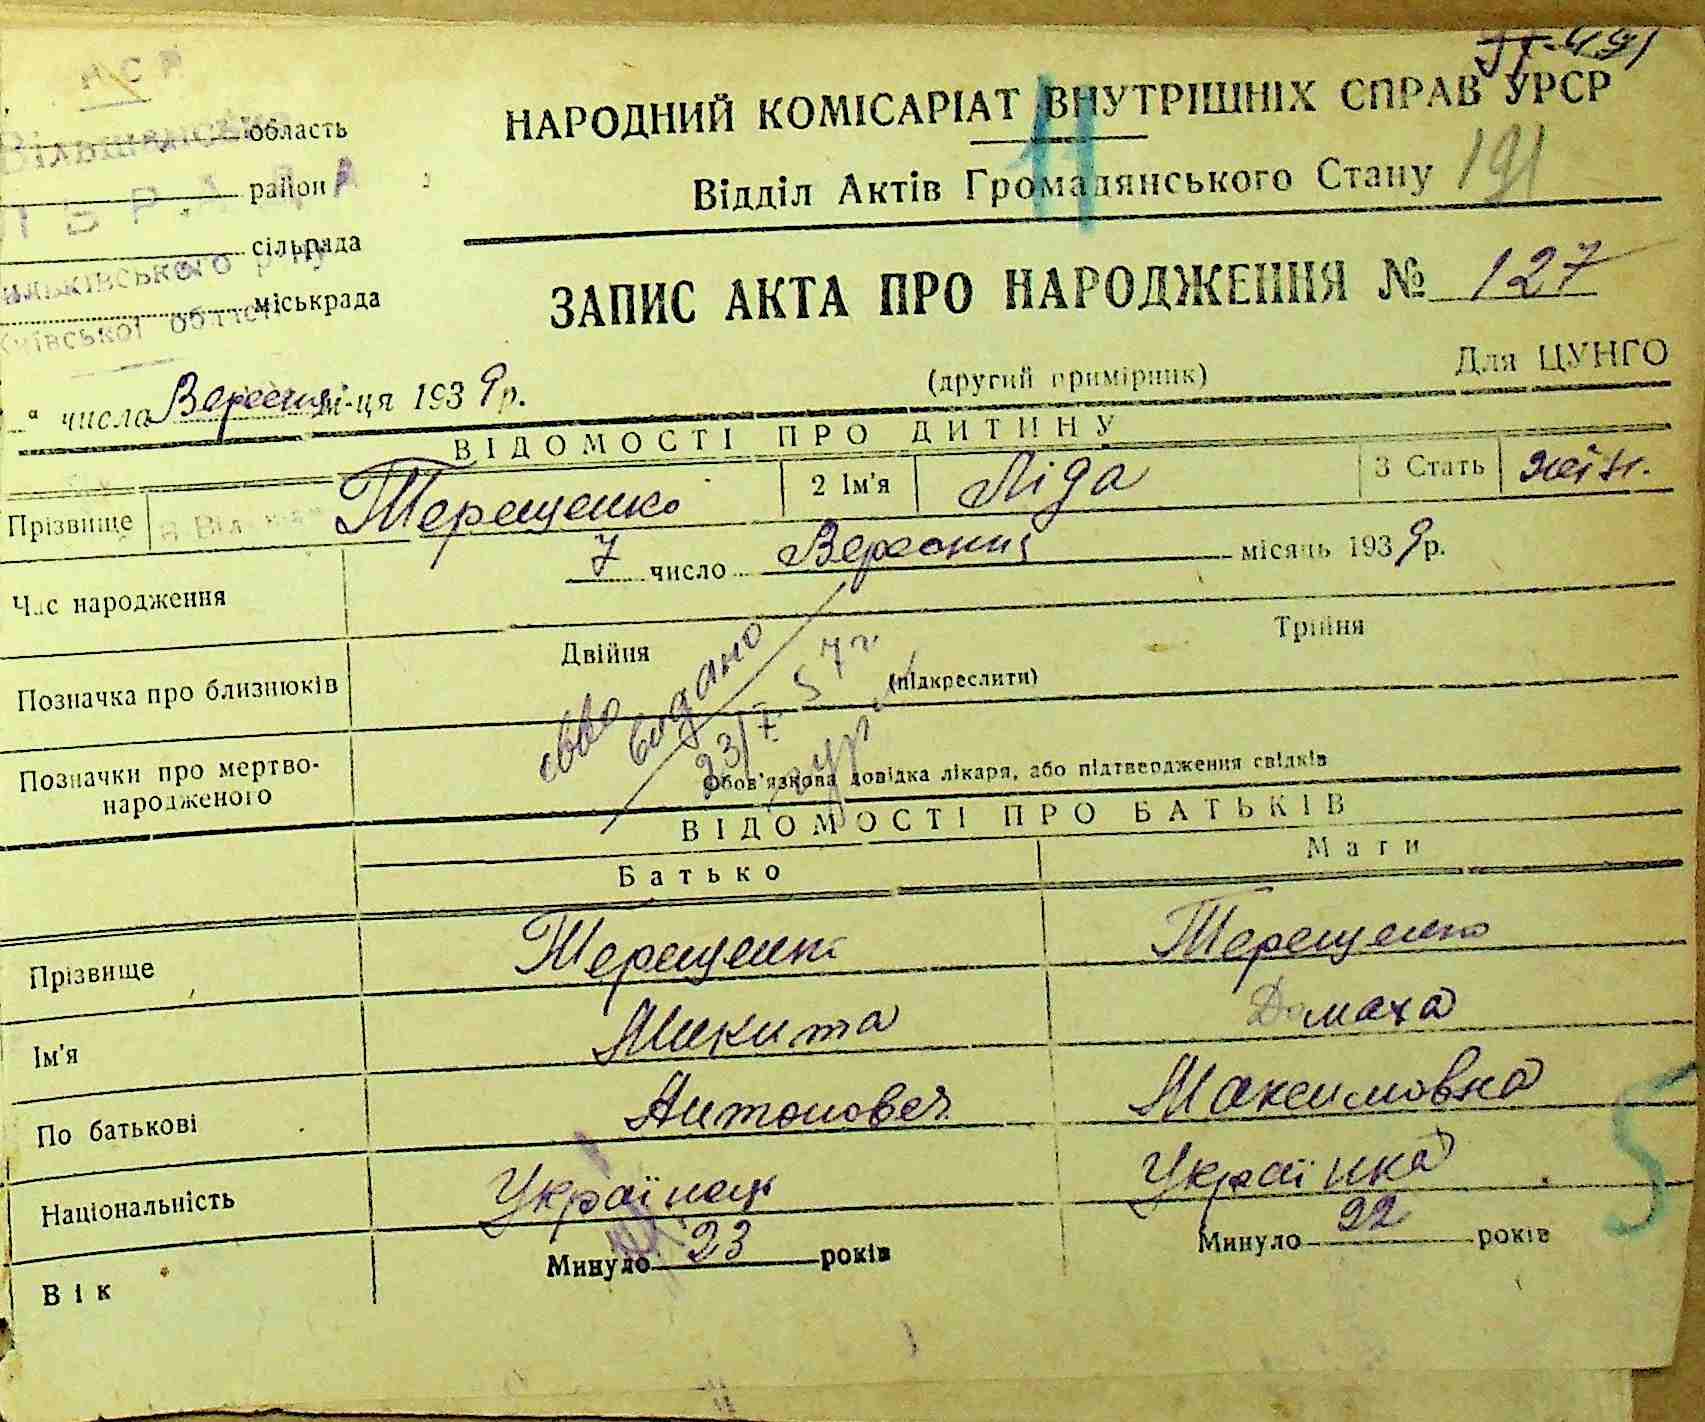 НАРОДНИЙ КОМІСАРІАТ ВНУТРІШНІХ СПРАВ УРСР
Відділ Актів Громадянського Стану 191
область
район
сільрада
міськрада
ЗАПИС АКТА ПРО НАРОДЖЕННЯ № 127
(другий примірник) Для ЦУНГО
" числа Вересня м-ця 1939 р.
ВІДОМОСТІ ПРО ДИТИНУ
Прізвище Терещенко 2 Ім'я Ліда 3 Стать жін.
Час народження 7 число Вересня місяць 1939 р.
Позначка про близнюків Двійня Трійня
(підкреслити)
видано
23/X 57 г
Позначки про мертво-
народженого
Обов'язкова довідка лікаря, або підтвердження свідків
ВІДОМОСТІ ПРО БАТЬКІВ
Батько Мати
Прізвище Терещенко Терещенко
Ім'я Микита Домаха
По батькові Антонович Максимовна
Національність Українець Українка
Вік Минуло 23 років Минуло 22 років
5